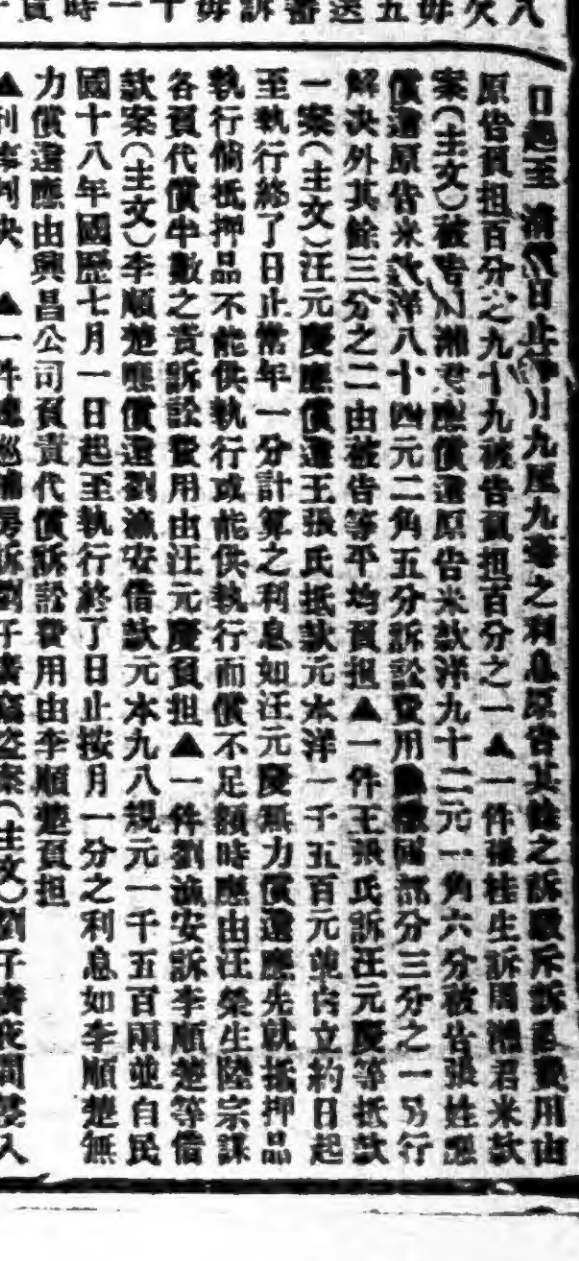 日起至清償日止每月九厘九毫之利息原告其餘之訴駁斥訴訟費用由
原告負担百分之九十九被告負担百分之一▲一件張桂生訴周湘君米欵
案(主文)被告周湘君應償還原告米欵洋九十二元一角六分被告張姓應
償還原告米欵洋八十四元二角五分訴訟費用 部分三分之一另行
解決外其餘三分之二由被告等平均負担▲一件王張氏訴汪元慶等抵欵
一案(主文)汪元慶應償還王張氏抵欵元本洋一千五百元並自立約日起
至執行終了日止常年一分計算之利息如汪元慶無力償還應先就抵押品
執行倘抵押品不能供執行或能供執行而償不足額時應由汪榮生陸宗課
各負代償半數之責訴訟費用由汪元慶負担▲一件劉漁安訴李順楚等借
欵案(主文)李順楚應償還劉漁安借欵元本九八規元一千五百兩並自民
國十八年國歷七月一日起至執行終了日止按月一分之利息如李順楚無
力償還應由興昌公司負責代償訴訟費用由李順楚負担
▲刑事判決▲一件 巡捕房訴劉子 竊盜案(主文)劉子 夜間侵入